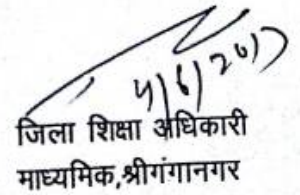 4/6/2017
जिला शिक्षा अधिकारी
माध्यमिक,श्रीगंगानगर